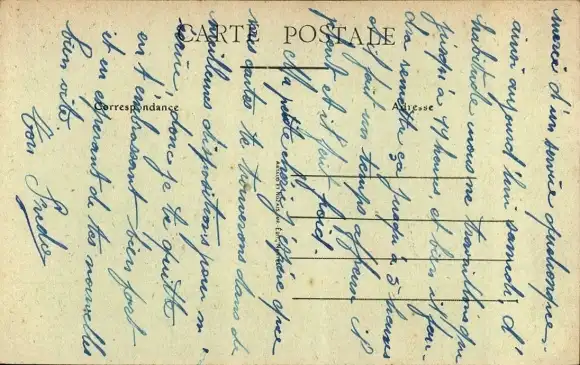 CARTE POSTALE
Correspondance
Adresse
d'un service quelconque.
ainsi aujourd'hui samedi, d'
habitude nous ne travaillons que
jusqu'à heures, et bien il fau-
dra remettre ça jusqu'à 5 heures
et il fait un temps affreux il
pleut et il fait froid.
Ma petite j'espère que
mes cartes te trouverons dans de
meilleures dispositions pour m'
écrire, donc je te quitte
en t'embrassant bien fort
et en espérant de tes nouvelles
bien vite
Ton André